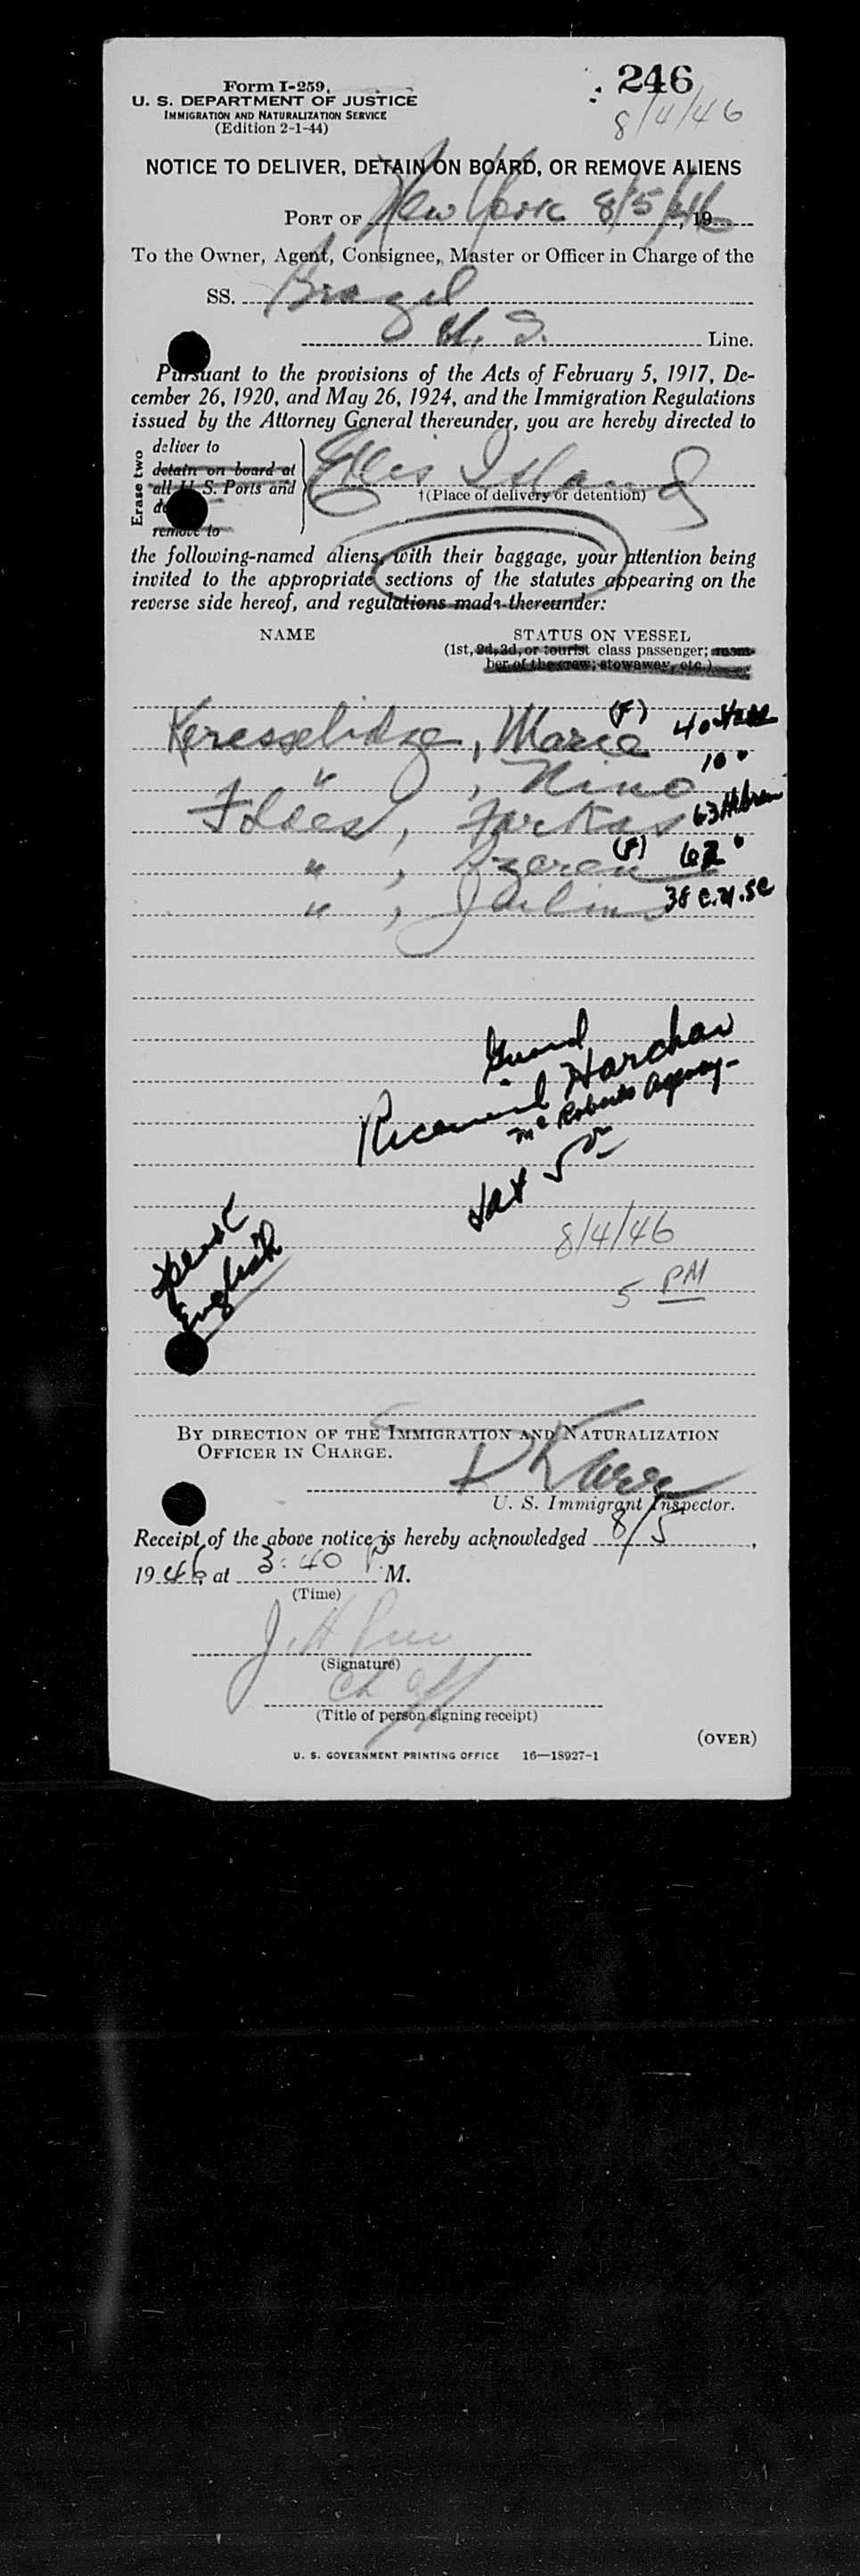 246
Form I-259
U. S. DEPARTMENT OF JUSTICE
IMMIGRATION AND NATURALIZATION SERVICE
(Edition 2-1-44)
8/4/46
NOTICE TO DELIVER, DETAIN ON BOARD, OR REMOVE ALIENS
PORT OF New York 8/5/46, 19
To the Owner, Agent, Consignee, Master or Officer in Charge of the
SS. Brazil
U. S. Line.
Pursuant to the provisions of the Acts of February 5, 1917, De-
cember 26, 1920, and May 26, 1924, and the Immigration Regulations
issued by the Attorney General thereunder, you are hereby directed to
Erase two
deliver to
detain on board at
all U. S. Ports and
remove to
Ellis Island
†(Place of delivery or detention)
the following-named aliens, with their baggage, your attention being
invited to the appropriate sections of the statutes appearing on the
reverse side hereof, and regulations made thereunder:
NAME STATUS ON VESSEL
(1st, 2d, 3d, or tourist class passenger; mem-
ber of the crew; stowaway, etc.)
Keresselidze, Marie (F) 40
" , Nino 10 "
Farkas 63 Hebrew
" , (F) 62 "
" , 38
Guard
Received
Mc Roberts Agency
8/4/46
English
5 PM
BY DIRECTION OF THE IMMIGRATION AND NATURALIZATION
OFFICER IN CHARGE.
U. S. Immigrant Inspector.
Receipt of the above notice is hereby acknowledged 8/5,
1946, at 3:40 P M.
(Time)
(Signature)
Ch Off
(Title of person signing receipt)
(OVER)
U. S. GOVERNMENT PRINTING OFFICE 16—18927-1